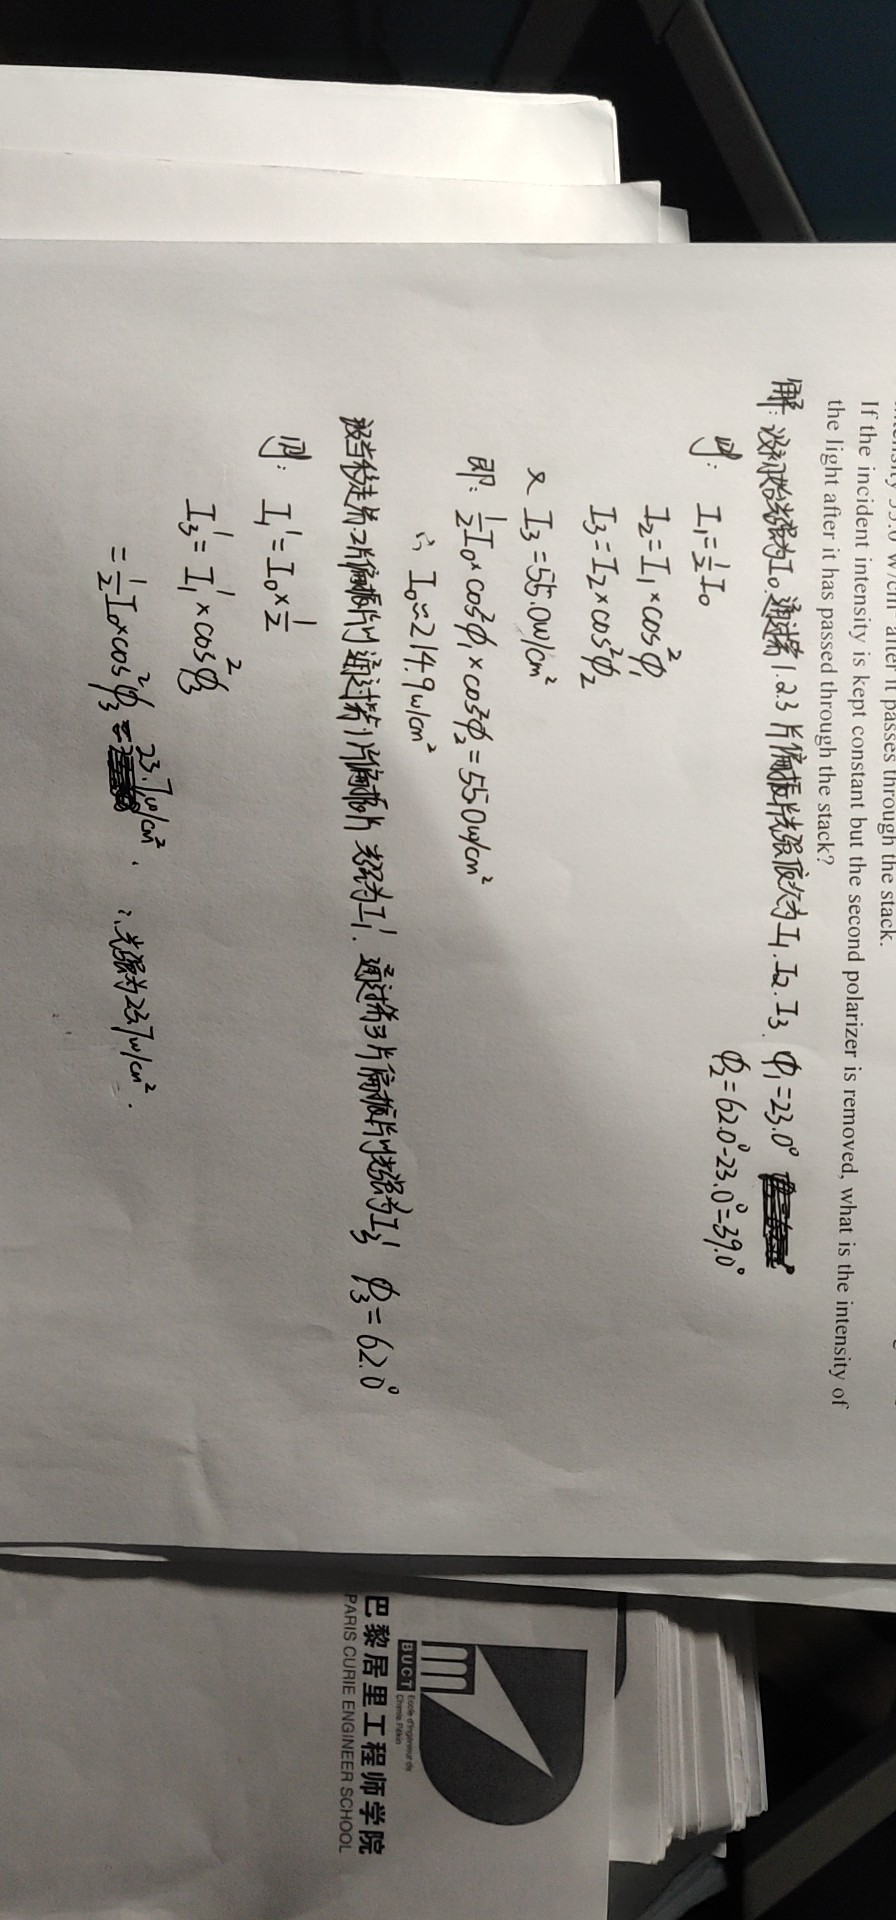 intensity 55.0 W/cm² after it passes through the stack.
If the incident intensity is kept constant but the second polarizer is removed, what is the intensity of
the light after it has passed through the stack?
解: 设初始光强为I₀. 通过第1.2.3片偏振片光强依次为I₁. I₂. I₃. ϕ₁=23.0°
ϕ₂=62.0°-23.0°=39.0°
则: I₁=½I₀
I₂=I₁×cos²ϕ₁
I₃=I₂×cos²ϕ₂
又 I₃=55.0w/cm²
即: ½I₀×cos²ϕ₁×cos²ϕ₂=55.0w/cm²
∴ I₀≈214.9w/cm²
设当移走第2片偏振片时 通过第1片偏振片光强为I₁'. 通过第3片偏振片时光强为I₃' ϕ₃=62.0°
则: I₁'=I₀×½
I₃'=I₁'×cos²ϕ₃
=½I₀×cos²ϕ₃=23.7w/cm². ∴光强为23.7w/cm².
BUCT
Ecole d'Ingénieur de
Chimie Pékin
巴黎居里工程师学院
PARIS CURIE ENGINEER SCHOOL